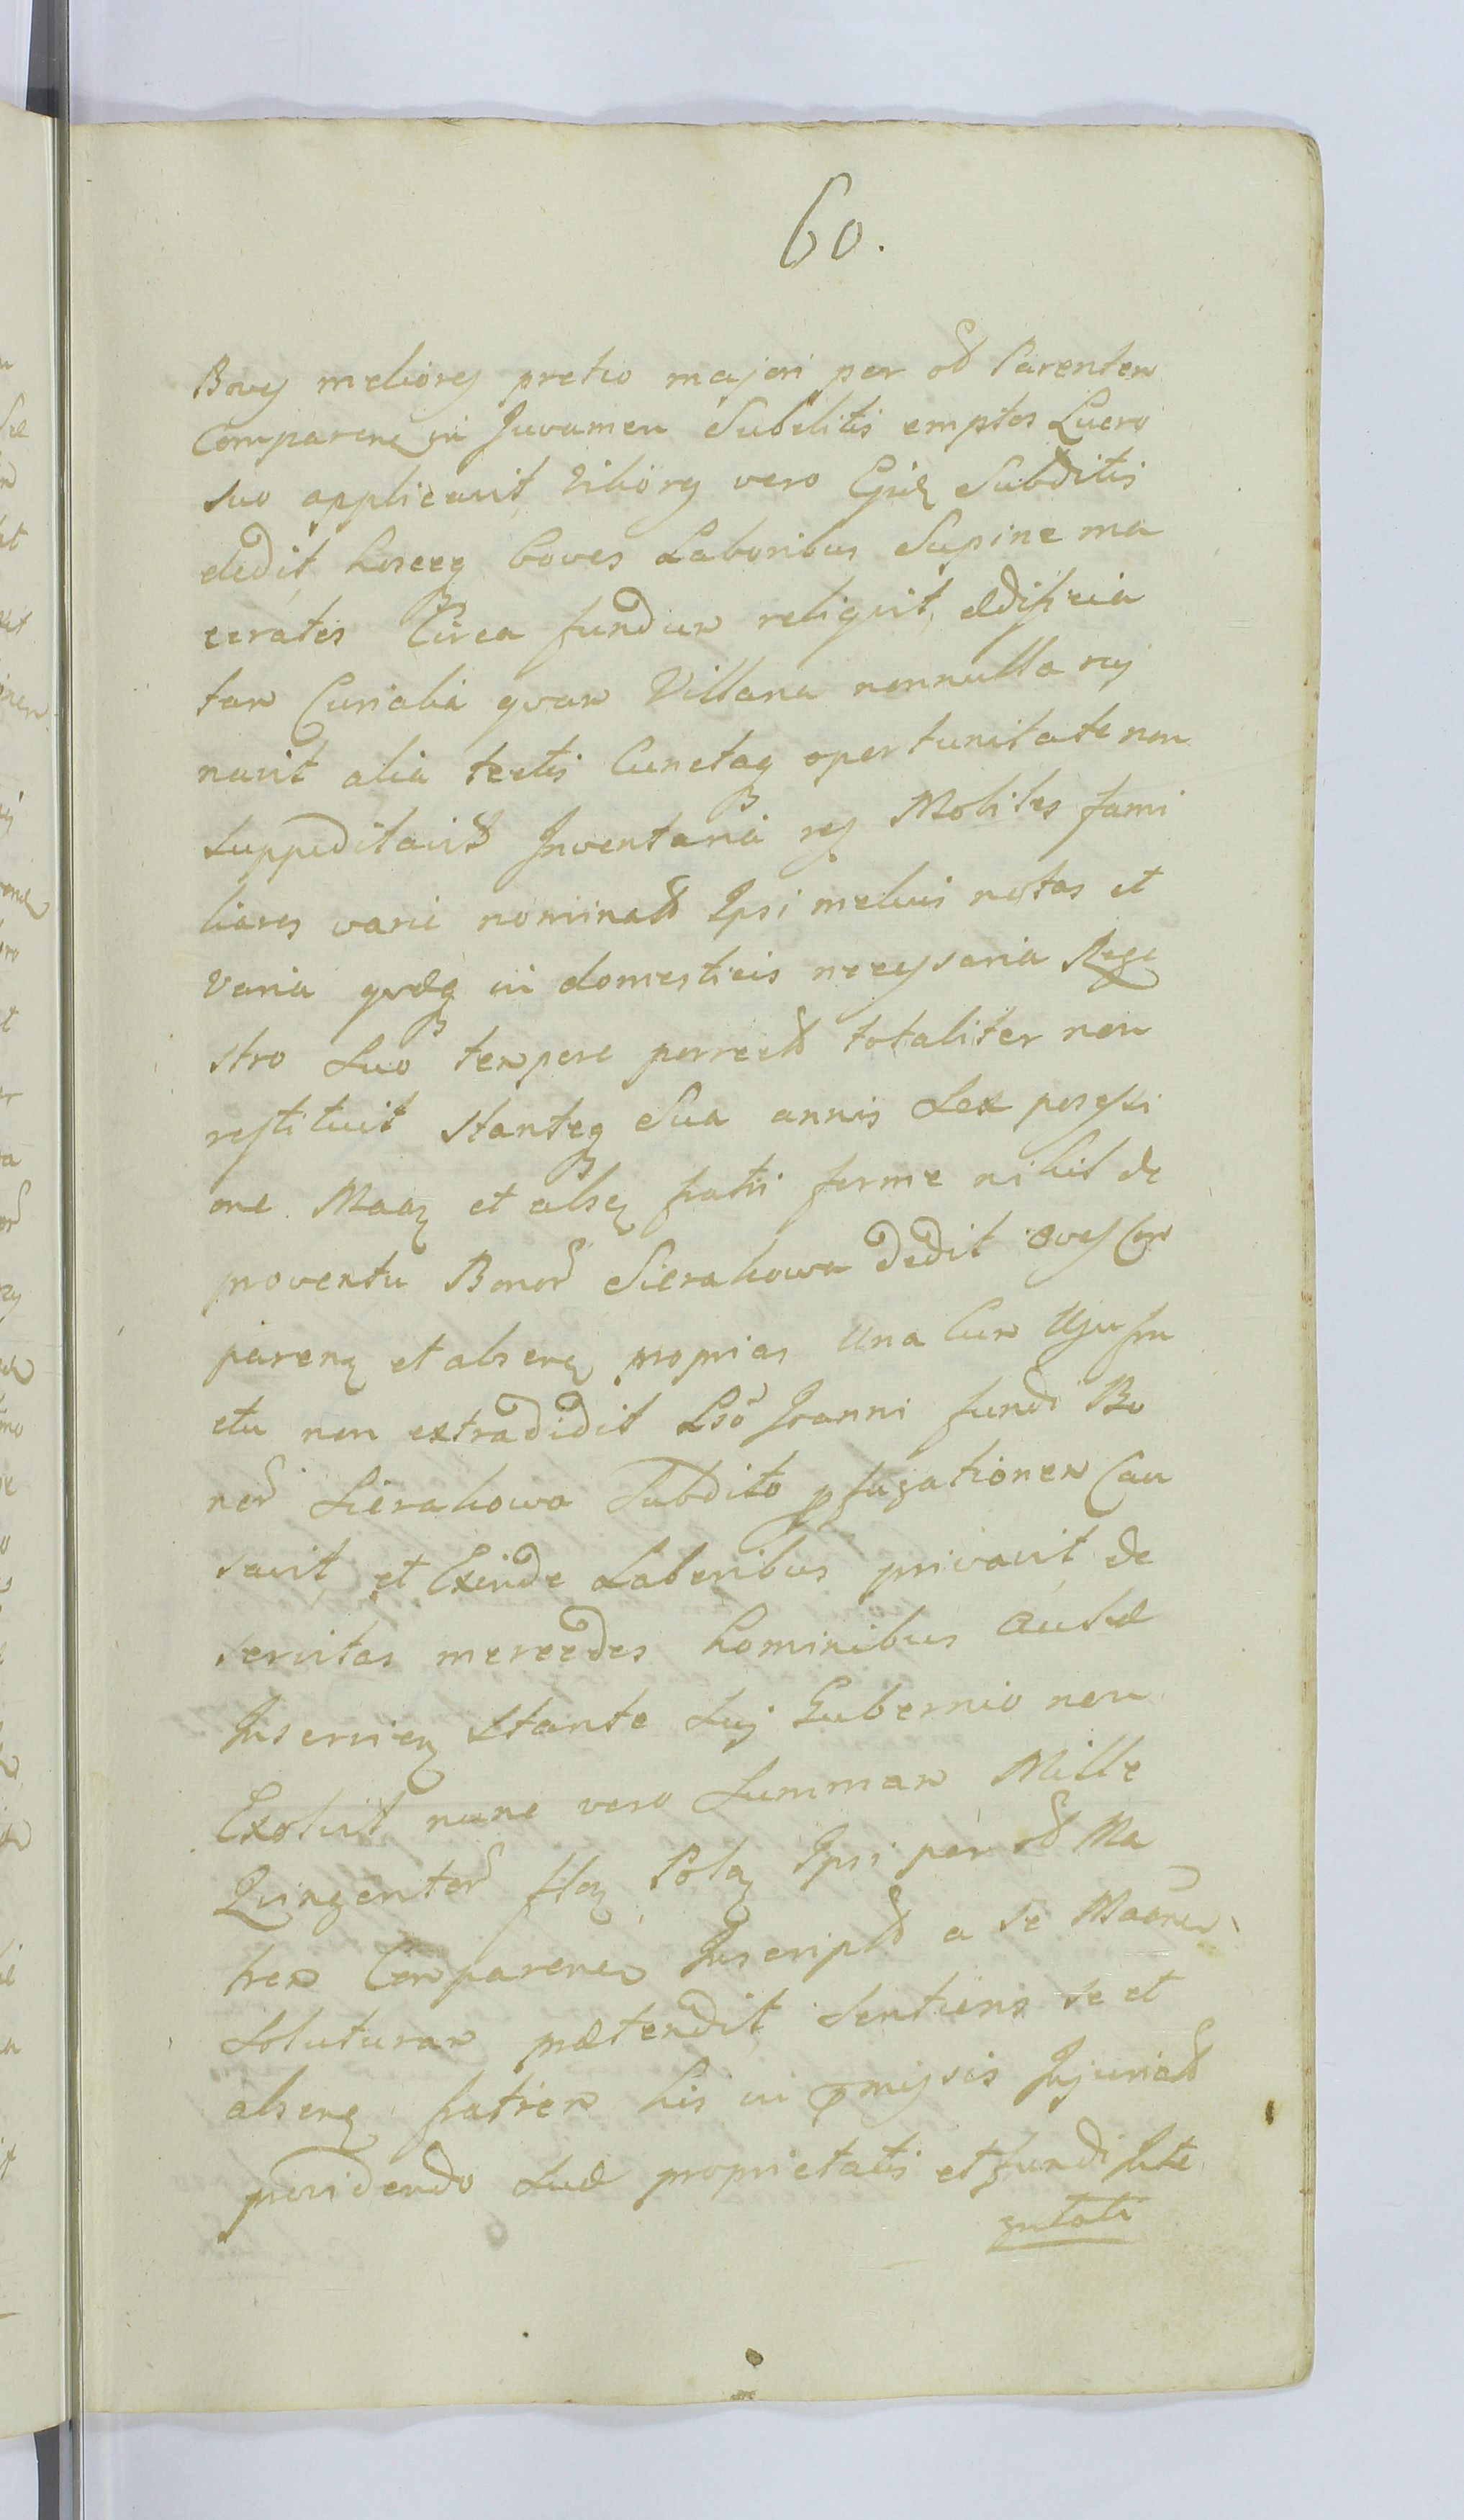 60.
Boves meliores pretio majori per od Parentem
Comparenē in Juvamen Subditis emptos Lucro
suo applicavit, viliores vero Ejusd Subditis
dedit, hoscq boves Laboribus Supine ma
ceratos Circa fundum reliquit, ædificia
tam Curialia qvam Villana nonnulla rui
navit alia tectis Cunctaq oportunitate non
suppeditavit Inventaria res Mobiles fami
liares varie nominatt Ipsi melius notas et
varia qvæq in domesticis necessaria Rege
stro suo tempore porrectt totaliter non
restituit stanteq Sua annis sex possessi
one Maaz et absez fratri ferme nihil de
proventu Bonor Sierakowa dedit oves Com
parenz et absenz proprias una Cum Usufru
ctu non extradidit Lsō Joanni fundi Bo
nor Sierakowa Subdito pfugationem Cau
savit, et Exinde Laboribus privavit, de
servitas mercedes hominibus Aulæ
Inservienz stante sui Gubernio non
Exolvit nunc vero Summam Mille
Qvingentor flor Polz Ipsi per od Ma
trem Comparenem Inscriptt a se Maōnem
soluturam prætendit, sentiens se et
absenz fratrem his in pmissis Injuriatt
providendo suæ proprietatis et fundi Inte
gritati